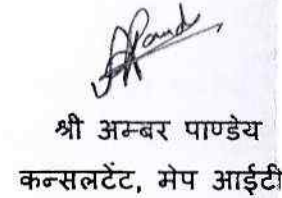 श्री अम्बर पाण्डेय
कन्सलटेंट, मेप आईटी